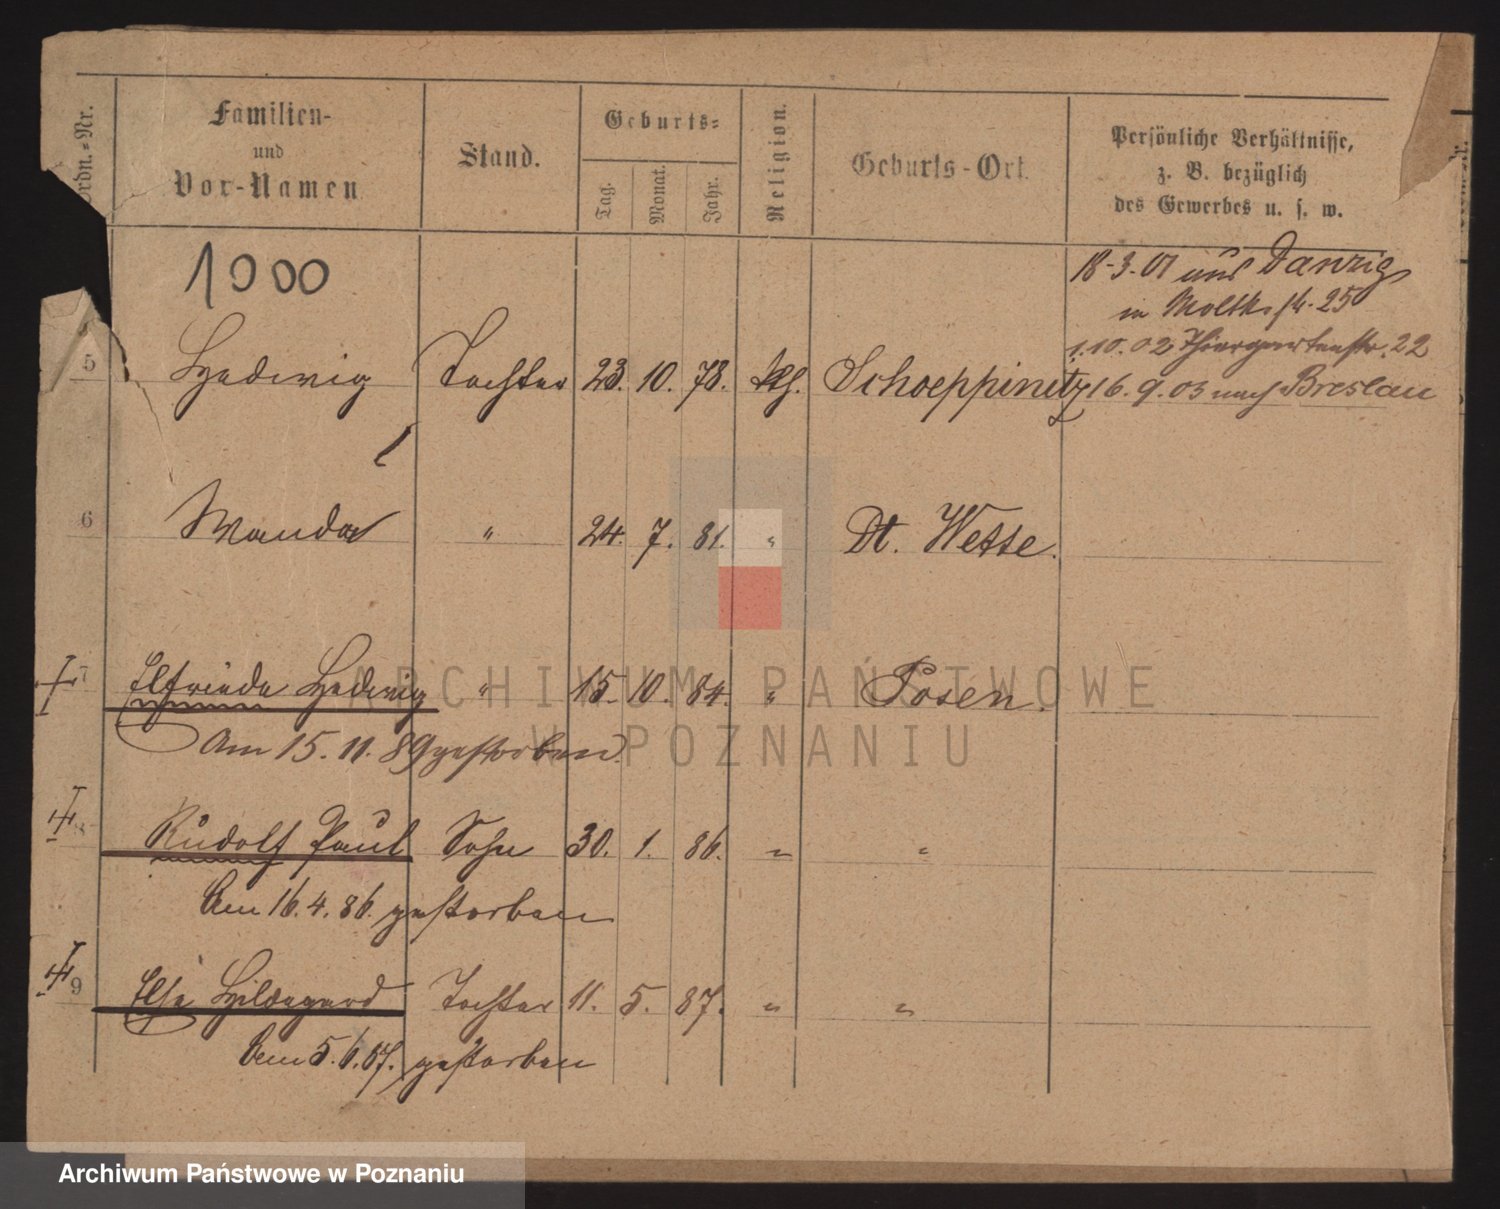 Ordn.-Nr.
Familien-
und
Vor-Namen
Stand.
Geburts-
Tag.
Monat.
Jahr.
Religion.
Geburts-Ort.
Persönliche Verhältnisse,
z. B. bezüglich
des Gewerbes u. s. w.
1000
18-3.01 aus Danzig
in Moltkestr. 25
1.10.02 Thiergartenstr. 22
5 Hedwig Tochter 23. 10. 78. kth. Schoeppinitz 16.9.03 nach Breslau
6 Wanda " 24. 7. 81. " Dt. Wette.
7 Elfriede Hedwig " 15. 10. 84. " Posen.
Am 15. 11. 89 gestorben
8 Rudolf Paul Sohn 30. 1. 86. " "
Am 16. 4. 86. gestorben
9 Else Hildegard Tochter 11. 5. 87. " "
Am 5. 6. 87. gestorben
ARCHIWUM PAŃSTWOWE
W POZNANIU
Archiwum Państwowe w Poznaniu